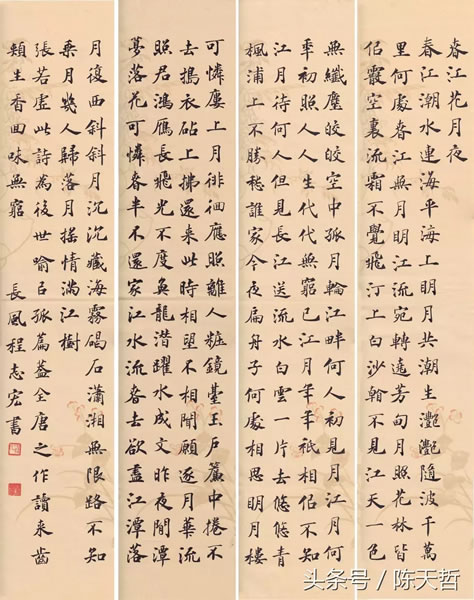 春江花月夜
春江潮水連海平海上明月共潮生灧灧隨波千萬
里何處春江無月明江流宛轉遶芳甸月照花林皆
佀霰空裏流霜不覺飛汀上白沙看不見江天一色
無纖塵皎皎空中孤月輪江畔何人初見月江月何
年初照人人生代代無窮已江月年年祇相佀不知
江月待何人但見長江送流水白雲一片去悠悠青
楓浦上不勝愁誰家今夜扁舟子何處相思明月樓
可憐廔上月徘徊應照離人粧鏡臺玉戶簾中捲不
去擣衣砧上拂還來此時相望不相聞願逐月華流
照君鴻雁長飛光不度魚龍潛躍水成文昨夜閒潭
夢落花可憐春半不還家江水流春去欲盡江潭落
月復西斜斜月沉沉藏海霧碣石瀟湘無限路不知
乘月幾人歸落月搖情滿江樹
張若虛此詩為後世喻曰孤篇蓋全唐之作讀來齒
頰生香回味無窮 長風程志宏書
头条号 / 陈天哲